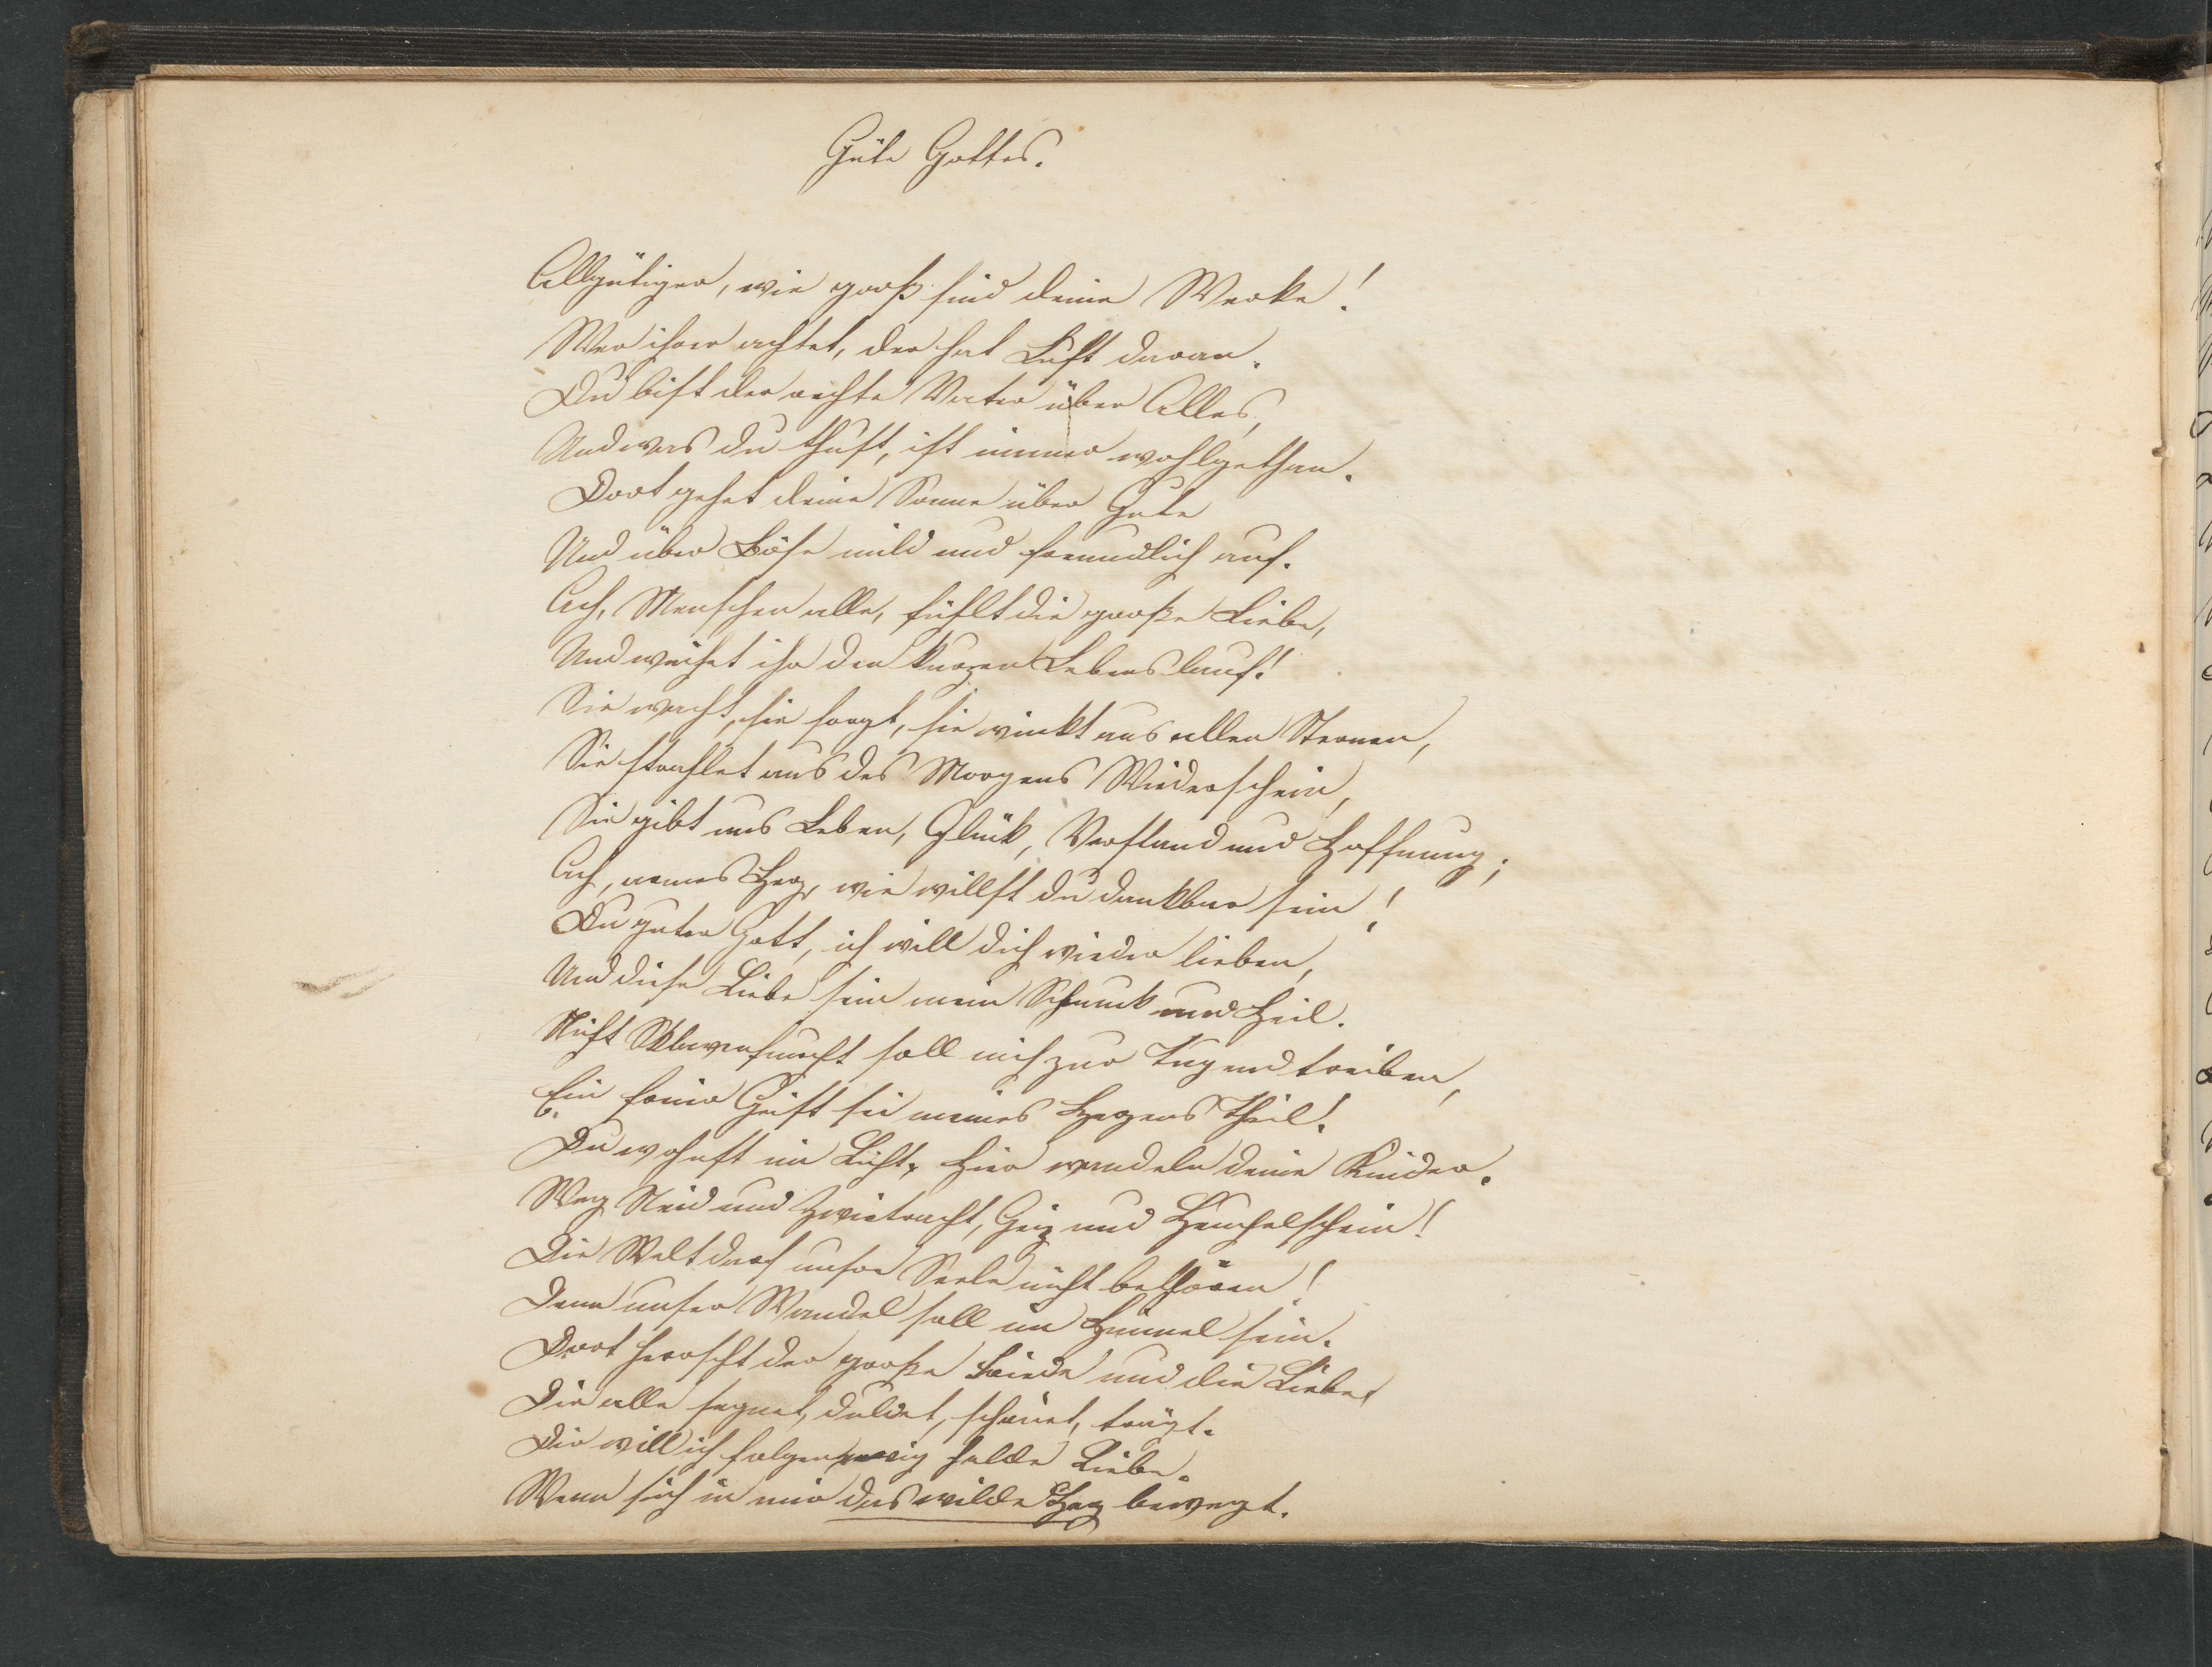 Güte Gottes.
Allgütiger, wie groß sind deine Werke!
Wer ihrer achtet, der hat Lust daran.
Du bist der rechte Vater über Alles,
Und was du thust, ist immer wohlgethan.
Dort gehet deine Sonne über Gute
Und über Böse mild und freundlich auf.
Ach, Menschen alle, fühlt die große Liebe,
Und weihet ihr den kurzen Lebenslauf!
Sie wacht, sie sorgt, sie winkt aus allen Sternen,
Sie strahlet aus des Morgens Wiederschein,
Sie gibt uns Leben, Glück, Verstand und Hoffnung;
Ach, armes Herz, wie willst du dankbar sein!
Du guter Gott, ich will dich wieder lieben,
Und diese Liebe sein mein Schmuck und Heil.
Nicht Sklavenfurcht soll mich zur Tugend treiben,
Ein freier Geist sei meines Herzens Theil!
Du wohnst im Licht, hier wandeln deine Kinder.
Weg Neid und Zwietracht, Geiz und Heuchelschein!
Die Welt darf unsre Seele nicht bethören!
Denn unser Wandel soll im Himmel sein.
Dort herrscht der große Friede und die Liebe,
Die alle segnet, duldet, schonet, trägt.
Dir will ich folgen, ewig holde Liebe.
Wenn sich in mir das wilde Herz bewegt.